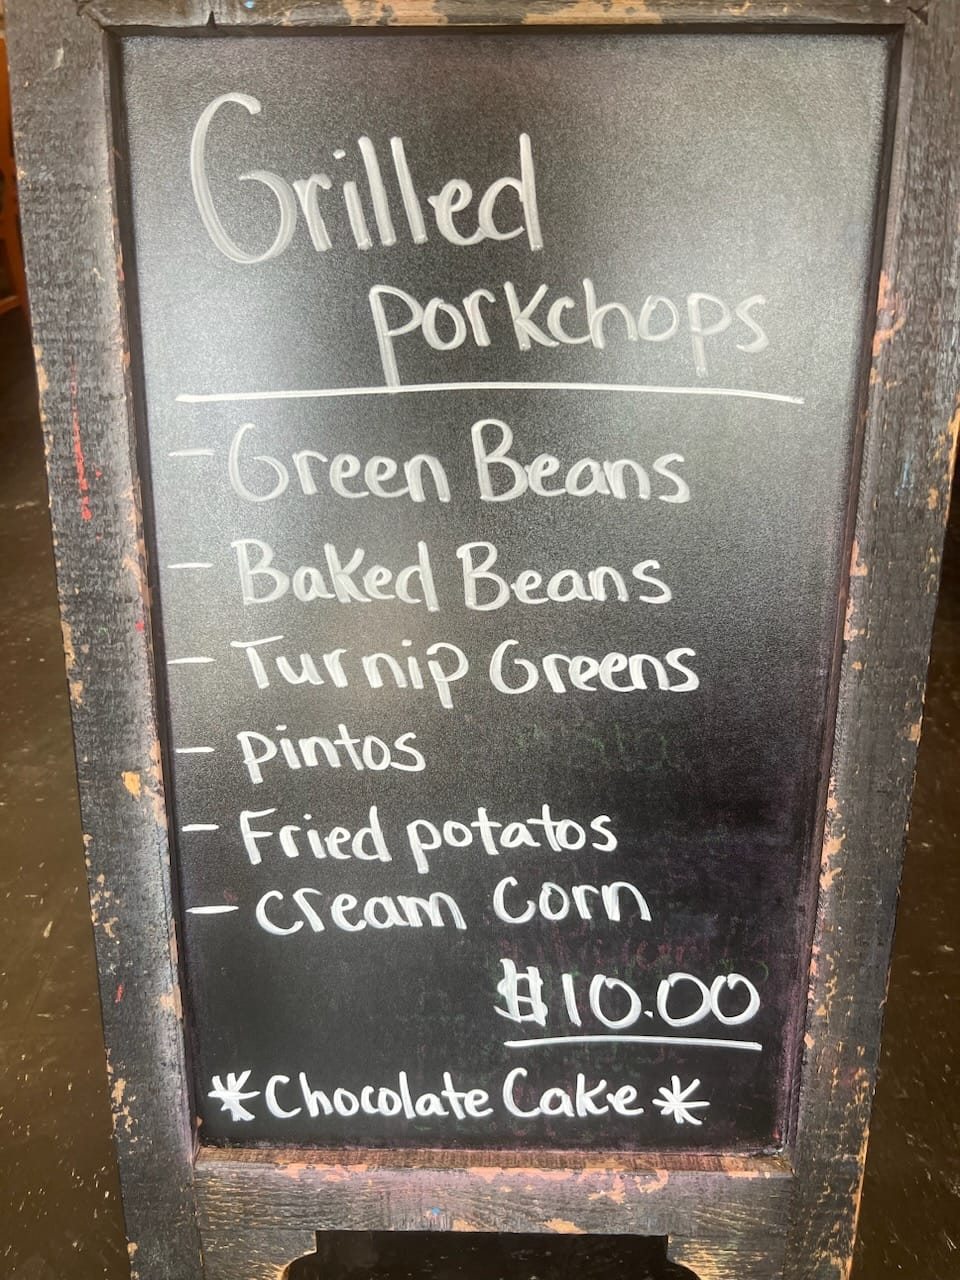 Grilled
porkchops
- Green Beans
- Baked Beans
- Turnip Greens
- pintos
- Fried potatos
- Cream Corn
$10.00
*Chocolate Cake*